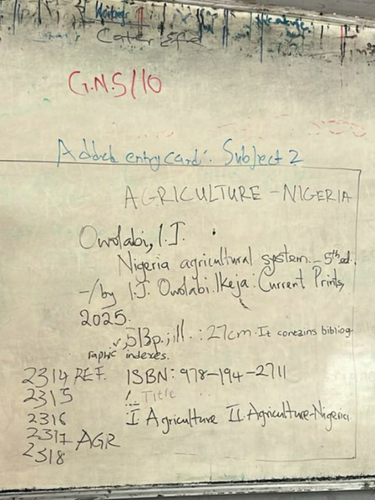 G.N.S/10
Added entry card: Subject 2
AGRICULTURE - NIGERIA
Owolabi, I.J.
Nigeria agricultural system. - 5th ed.
-/by I.J. Owolabi. Ikeja: Current Prints,
2025.
513p; ill. : 27cm. It contains bibliog-
raphic indexes.
2314 REF. ISBN: 978-194-2711
2315 I. Title
2316 I Agriculture II Agriculture-Nigeria
2317 AGR
2318